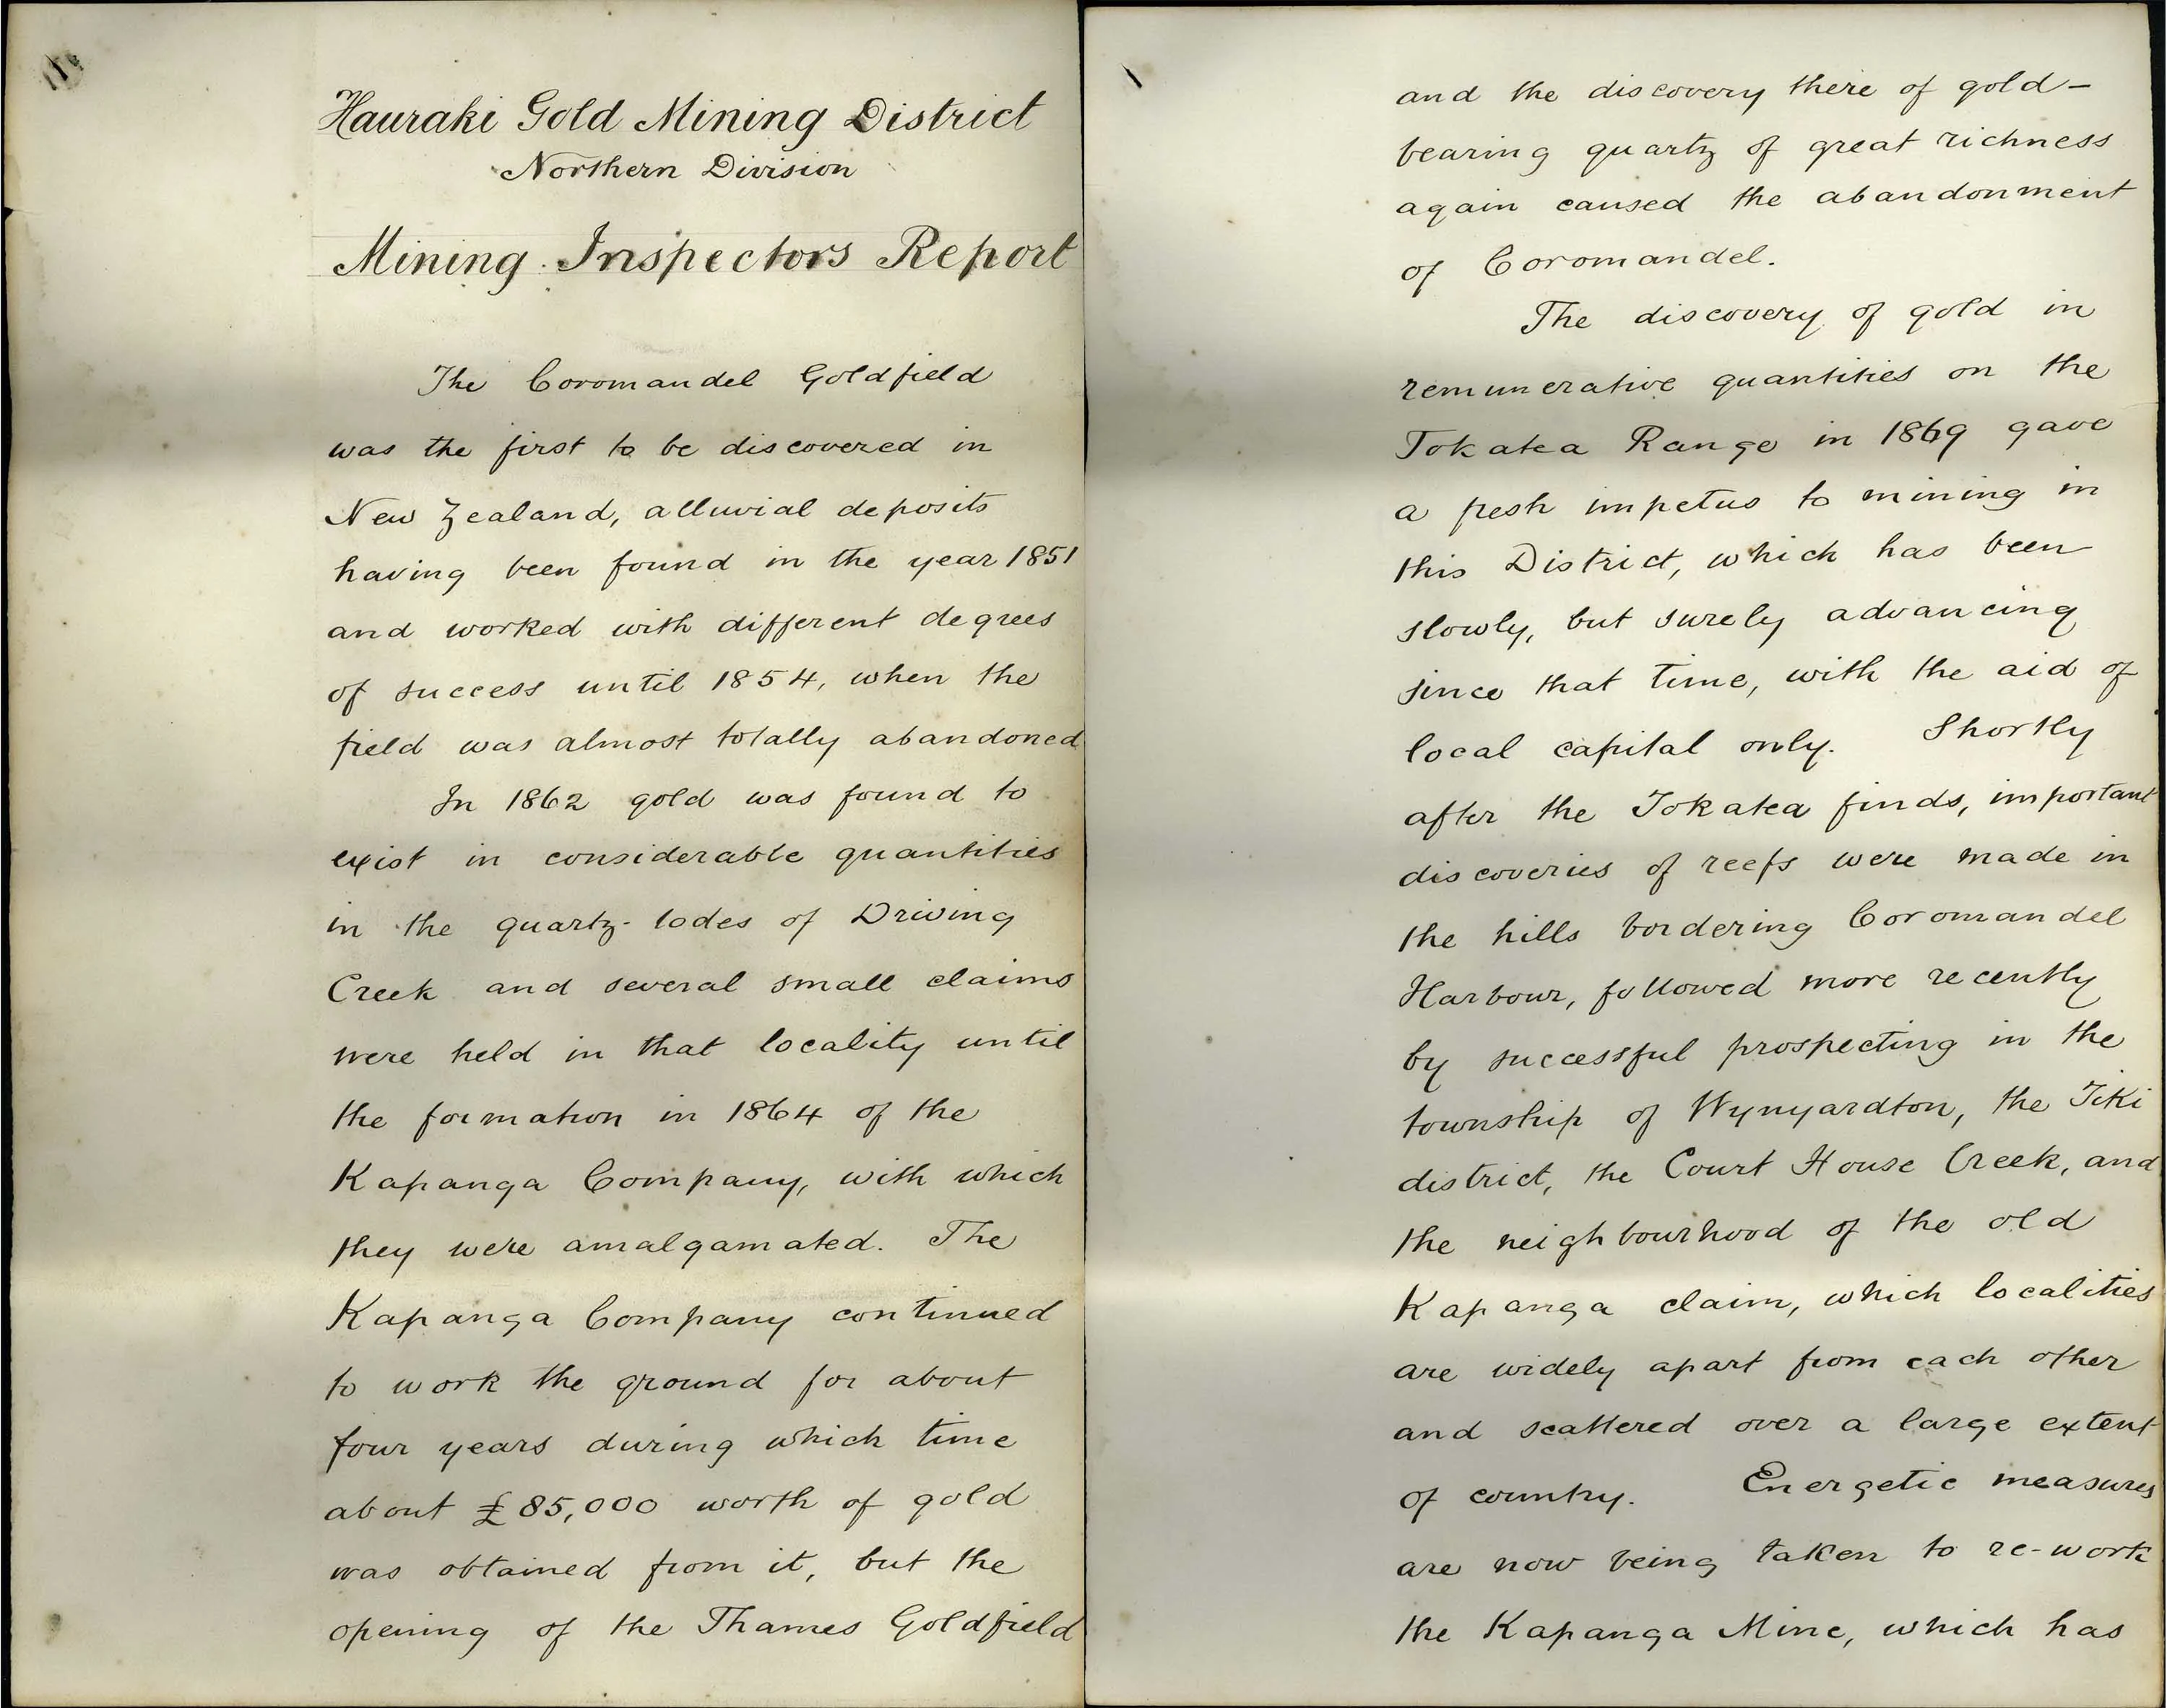 Hauraki Gold Mining District
Northern Division
Mining Inspectors Report
The Coromandel Goldfield
was the first to be discovered in
New Zealand, alluvial deposits
having been found in the year 1851
and worked with different degrees
of success until 1854, when the
field was almost totally abandoned
In 1862 gold was found to
exist in considerable quantities
in the quartz-lodes of Driving
Creek and several small claims
were held in that locality until
the formation in 1864 of the
Kapanga Company, with which
they were amalgamated. The
Kapanga Company continued
to work the ground for about
four years during which time
about £85,000 worth of gold
was obtained from it, but the
opening of the Thames Goldfield
and the discovery there of gold-
bearing quartz of great richness
again caused the abandonment
of Coromandel.
The discovery of gold in
remunerative quantities on the
Tokatea Range in 1869 gave
a fresh impetus to mining in
this District, which has been
slowly, but surely advancing
since that time, with the aid of
local capital only. Shortly
after the Tokatea finds, important
discoveries of reefs were made in
the hills bordering Coromandel
Harbour, followed more recently
by successful prospecting in the
township of Wynyardton, the Tiki
district, the Court House Creek, and
the neighbourhood of the old
Kapanga claim, which localities
are widely apart from each other
and scattered over a large extent
of country. Energetic measures
are now being taken to re-work
the Kapanga Mine, which has